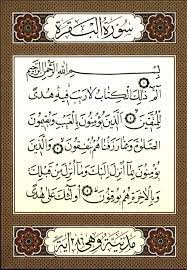 سُورَةُ الْبَقَرَةِ
بِسْمِ اللَّهِ الرَّحْمَٰنِ الرَّحِيمِ
الٓمٓ ذَٰلِكَ الْكِتَابُ لَا رَيْبَ فِيهِ هُدًى
لِلْمُتَّقِينَ الَّذِينَ يُؤْمِنُونَ بِالْغَيْبِ وَيُقِيمُونَ
الصَّلَوٰةَ وَمِمَّا رَزَقْنَاهُمْ يُنْفِقُونَ وَالَّذِينَ
يُؤْمِنُونَ بِمَا أُنْزِلَ إِلَيْكَ وَمَا أُنْزِلَ مِنْ قَبْلِكَ
وَبِالْآخِرَةِ هُمْ يُوقِنُونَ أُولَٰئِكَ عَلَىٰ هُدًى
مَدَنِيَّة وَهِيَ آيَة